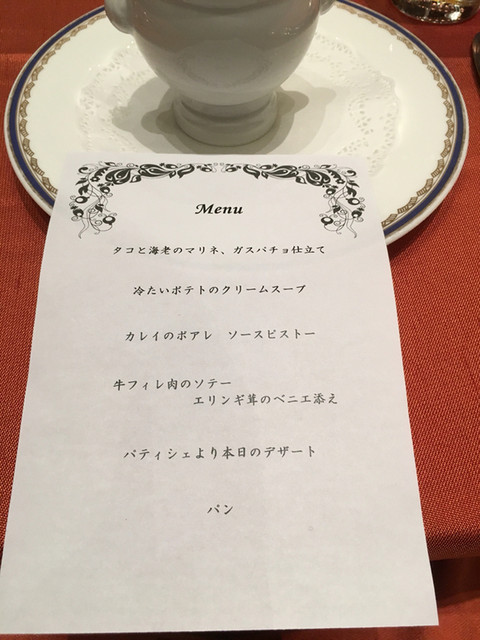 Menu
タコと海老のマリネ、ガスパチョ仕立て
冷たいポテトのクリームスープ
カレイのポアレ　ソースピストー
牛フィレ肉のソテー
エリンギ茸のベニエ添え
パティシェより本日のデザート
パン